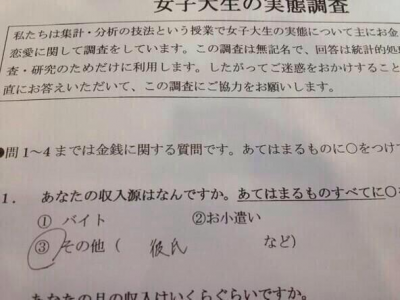 女子大生の実態調査
私たちは集計・分析の技法という授業で女子大生の実態について主にお金
恋愛に関して調査をしています。この調査は無記名で、回答は統計的処
査・研究のためだけに利用します。したがってご迷惑をおかけすること
直にお答えいただいて、この調査にご協力をお願いします。
●問1～4までは金銭に関する質問です。あてはまるものに○をつけて
1. あなたの収入源はなんですか。あてはまるものすべてに○
① バイト ②お小遣い
③ その他( 彼氏 など)
あなたの月の収入はいくらぐらいですか。